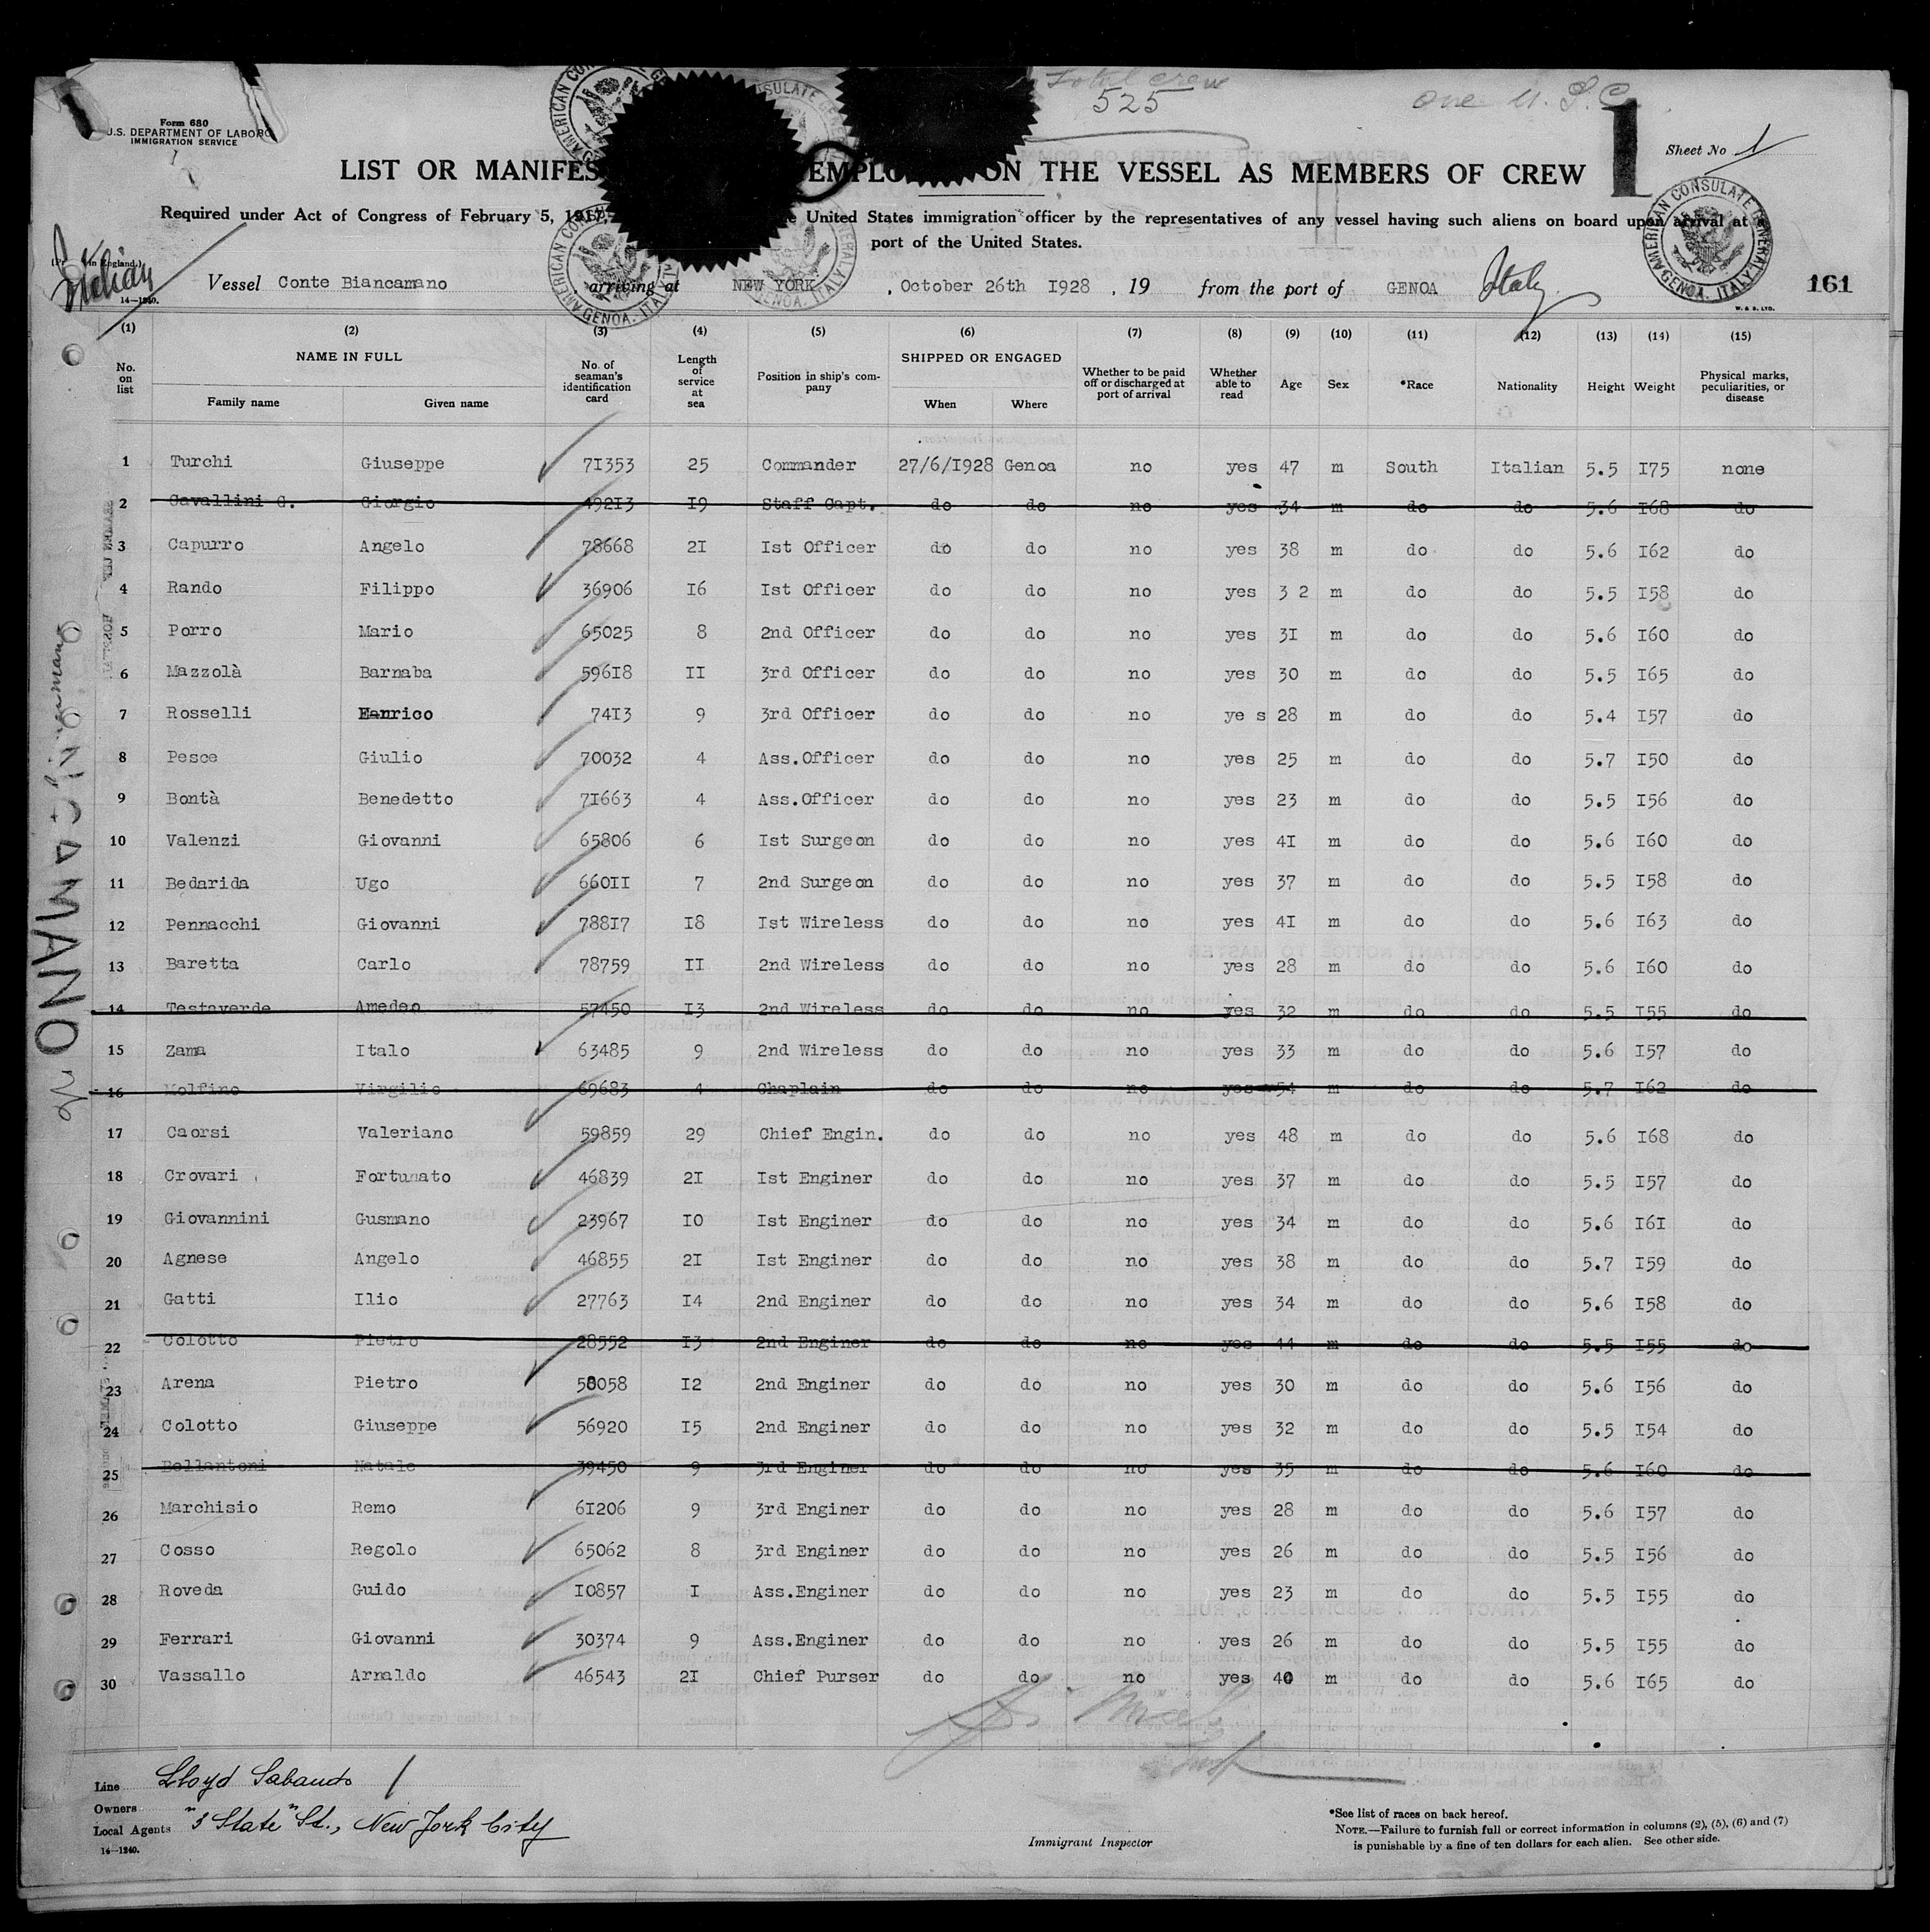 Total crew
525
one U.S.C.
1
Form 680
U.S. DEPARTMENT OF LABOR
IMMIGRATION SERVICE
Sheet No 1
LIST OR MANIFES EMPLO ON THE VESSEL AS MEMBERS OF CREW
Required under Act of Congress of February 5, 1917, United States immigration officer by the representatives of any vessel having such aliens on board upon arrival at a
port of the United States.
in England.)
Italian
14—1240.
Vessel Conte Biancamano arriving at NEW YORK , October 26th I928 , 19 from the port of GENOA Italy
161
W. & S. LTD.
AMERICAN CONSULATE GENERAL
GENOA. ITALY
(1) (2) (3) (4) (5) (6) (7) (8) (9) (10) (11) (12) (13) (14) (15)
No. on list NAME IN FULL Family name Given name No. of seaman's identification card Length of service at sea Position in ship's company SHIPPED OR ENGAGED When Where Whether to be paid off or discharged at port of arrival Whether able to read Age Sex *Race Nationality Height Weight Physical marks, peculiarities, or disease
1 Turchi Giuseppe 7I353 25 Commander 27/6/I928 Genoa no yes 47 m South Italian 5.5 I75 none
2 Cavallini G. Giorgio 492I3 I9 Staff Capt. do do no yes 34 m do do 5.6 I68 do
3 Capurro Angelo 78668 2I Ist Officer do do no yes 38 m do do 5.6 I62 do
4 Rando Filippo 36906 I6 Ist Officer do do no yes 3 2 m do do 5.5 I58 do
5 Porro Mario 65025 8 2nd Officer do do no yes 3I m do do 5.6 I60 do
6 Mazzolà Barnaba 596I8 II 3rd Officer do do no yes 30 m do do 5.5 I65 do
7 Rosselli Enrico 74I3 9 3rd Officer do do no ye s 28 m do do 5.4 I57 do
8 Pesce Giulio 70032 4 Ass.Officer do do no yes 25 m do do 5.7 I50 do
9 Bontà Benedetto 7I663 4 Ass.Officer do do no yes 23 m do do 5.5 I56 do
10 Valenzi Giovanni 65806 6 Ist Surgeon do do no yes 4I m do do 5.6 I60 do
11 Bedarida Ugo 660II 7 2nd Surgeon do do no yes 37 m do do 5.5 I58 do
12 Pennacchi Giovanni 788I7 I8 Ist Wireless do do no yes 4I m do do 5.6 I63 do
13 Baretta Carlo 78759 II 2nd Wireless do do no yes 28 m do do 5.6 I60 do
14 Testaverde Amedeo 57450 I3 2nd Wireless do do no yes 32 m do do 5.5 I55 do
15 Zama Italo 63485 9 2nd Wireless do do no yes 33 m do do 5.6 I57 do
16 Molfino Virgilio 69683 4 Chaplain do do no yes 54 m do do 5.7 I62 do
17 Caorsi Valeriano 59859 29 Chief Engin. do do no yes 48 m do do 5.6 I68 do
18 Crovari Fortunato 46839 2I Ist Enginer do do no yes 37 m do do 5.5 I57 do
19 Giovannini Gusmano 23967 I0 Ist Enginer do do no yes 34 m do do 5.6 I6I do
20 Agnese Angelo 46855 2I Ist Enginer do do no yes 38 m do do 5.7 I59 do
21 Gatti Ilio 27763 I4 2nd Enginer do do no yes 34 m do do 5.6 I58 do
22 Colotto Pietro 28552 I3 2nd Enginer do do no yes 44 m do do 5.5 I55 do
23 Arena Pietro 58058 I2 2nd Enginer do do no yes 30 m do do 5.6 I56 do
24 Colotto Giuseppe 56920 I5 2nd Enginer do do no yes 32 m do do 5.5 I54 do
25 Bellantoni Natale 39450 9 3rd Enginer do do no yes 35 m do do 5.6 I60 do
26 Marchisio Remo 6I206 9 3rd Enginer do do no yes 28 m do do 5.6 I57 do
27 Cosso Regolo 65062 8 3rd Enginer do do no yes 26 m do do 5.5 I56 do
28 Roveda Guido I0857 I Ass.Enginer do do no yes 23 m do do 5.5 I55 do
29 Ferrari Giovanni 30374 9 Ass.Enginer do do no yes 26 m do do 5.5 I55 do
30 Vassallo Arnaldo 46543 2I Chief Purser do do no yes 40 m do do 5.6 I65 do
Line Lloyd Sabaudo
Owners
Local Agents "3 State" St., New York City
14—1240.
Immigrant Inspector
*See list of races on back hereof.
NOTE.—Failure to furnish full or correct information in columns (2), (5), (6) and (7)
is punishable by a fine of ten dollars for each alien. See other side.